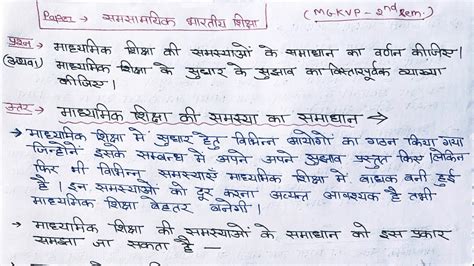 Paper → समसामयिक भारतीय शिक्षा (MGKVP - 2nd Sem.)
प्रश्न → माध्यमिक शिक्षा की समस्याओं के समाधान का वर्णन कीजिए।
(अथवा) माध्यमिक शिक्षा के सुधार के सुझाव का विस्तारपूर्वक व्याख्या
कीजिए।
उत्तर → माध्यमिक शिक्षा की समस्या का समाधान →
→ माध्यमिक शिक्षा में सुधार हेतु विभिन्न आयोगों का गठन किया गया
जिन्होंने इसके सम्बन्ध में अपने अपने सुझाव प्रस्तुत किए। लेकिन
फिर भी विभिन्न समस्याएँ माध्यमिक शिक्षा में बाधक बनी हुई
है। इन समस्याओं को दूर करना अत्यन्त आवश्यक है तभी
माध्यमिक शिक्षा बेहतर बनेगी।
→ माध्यमिक शिक्षा की समस्याओं के समाधान को इस प्रकार
समझा जा सकता है —